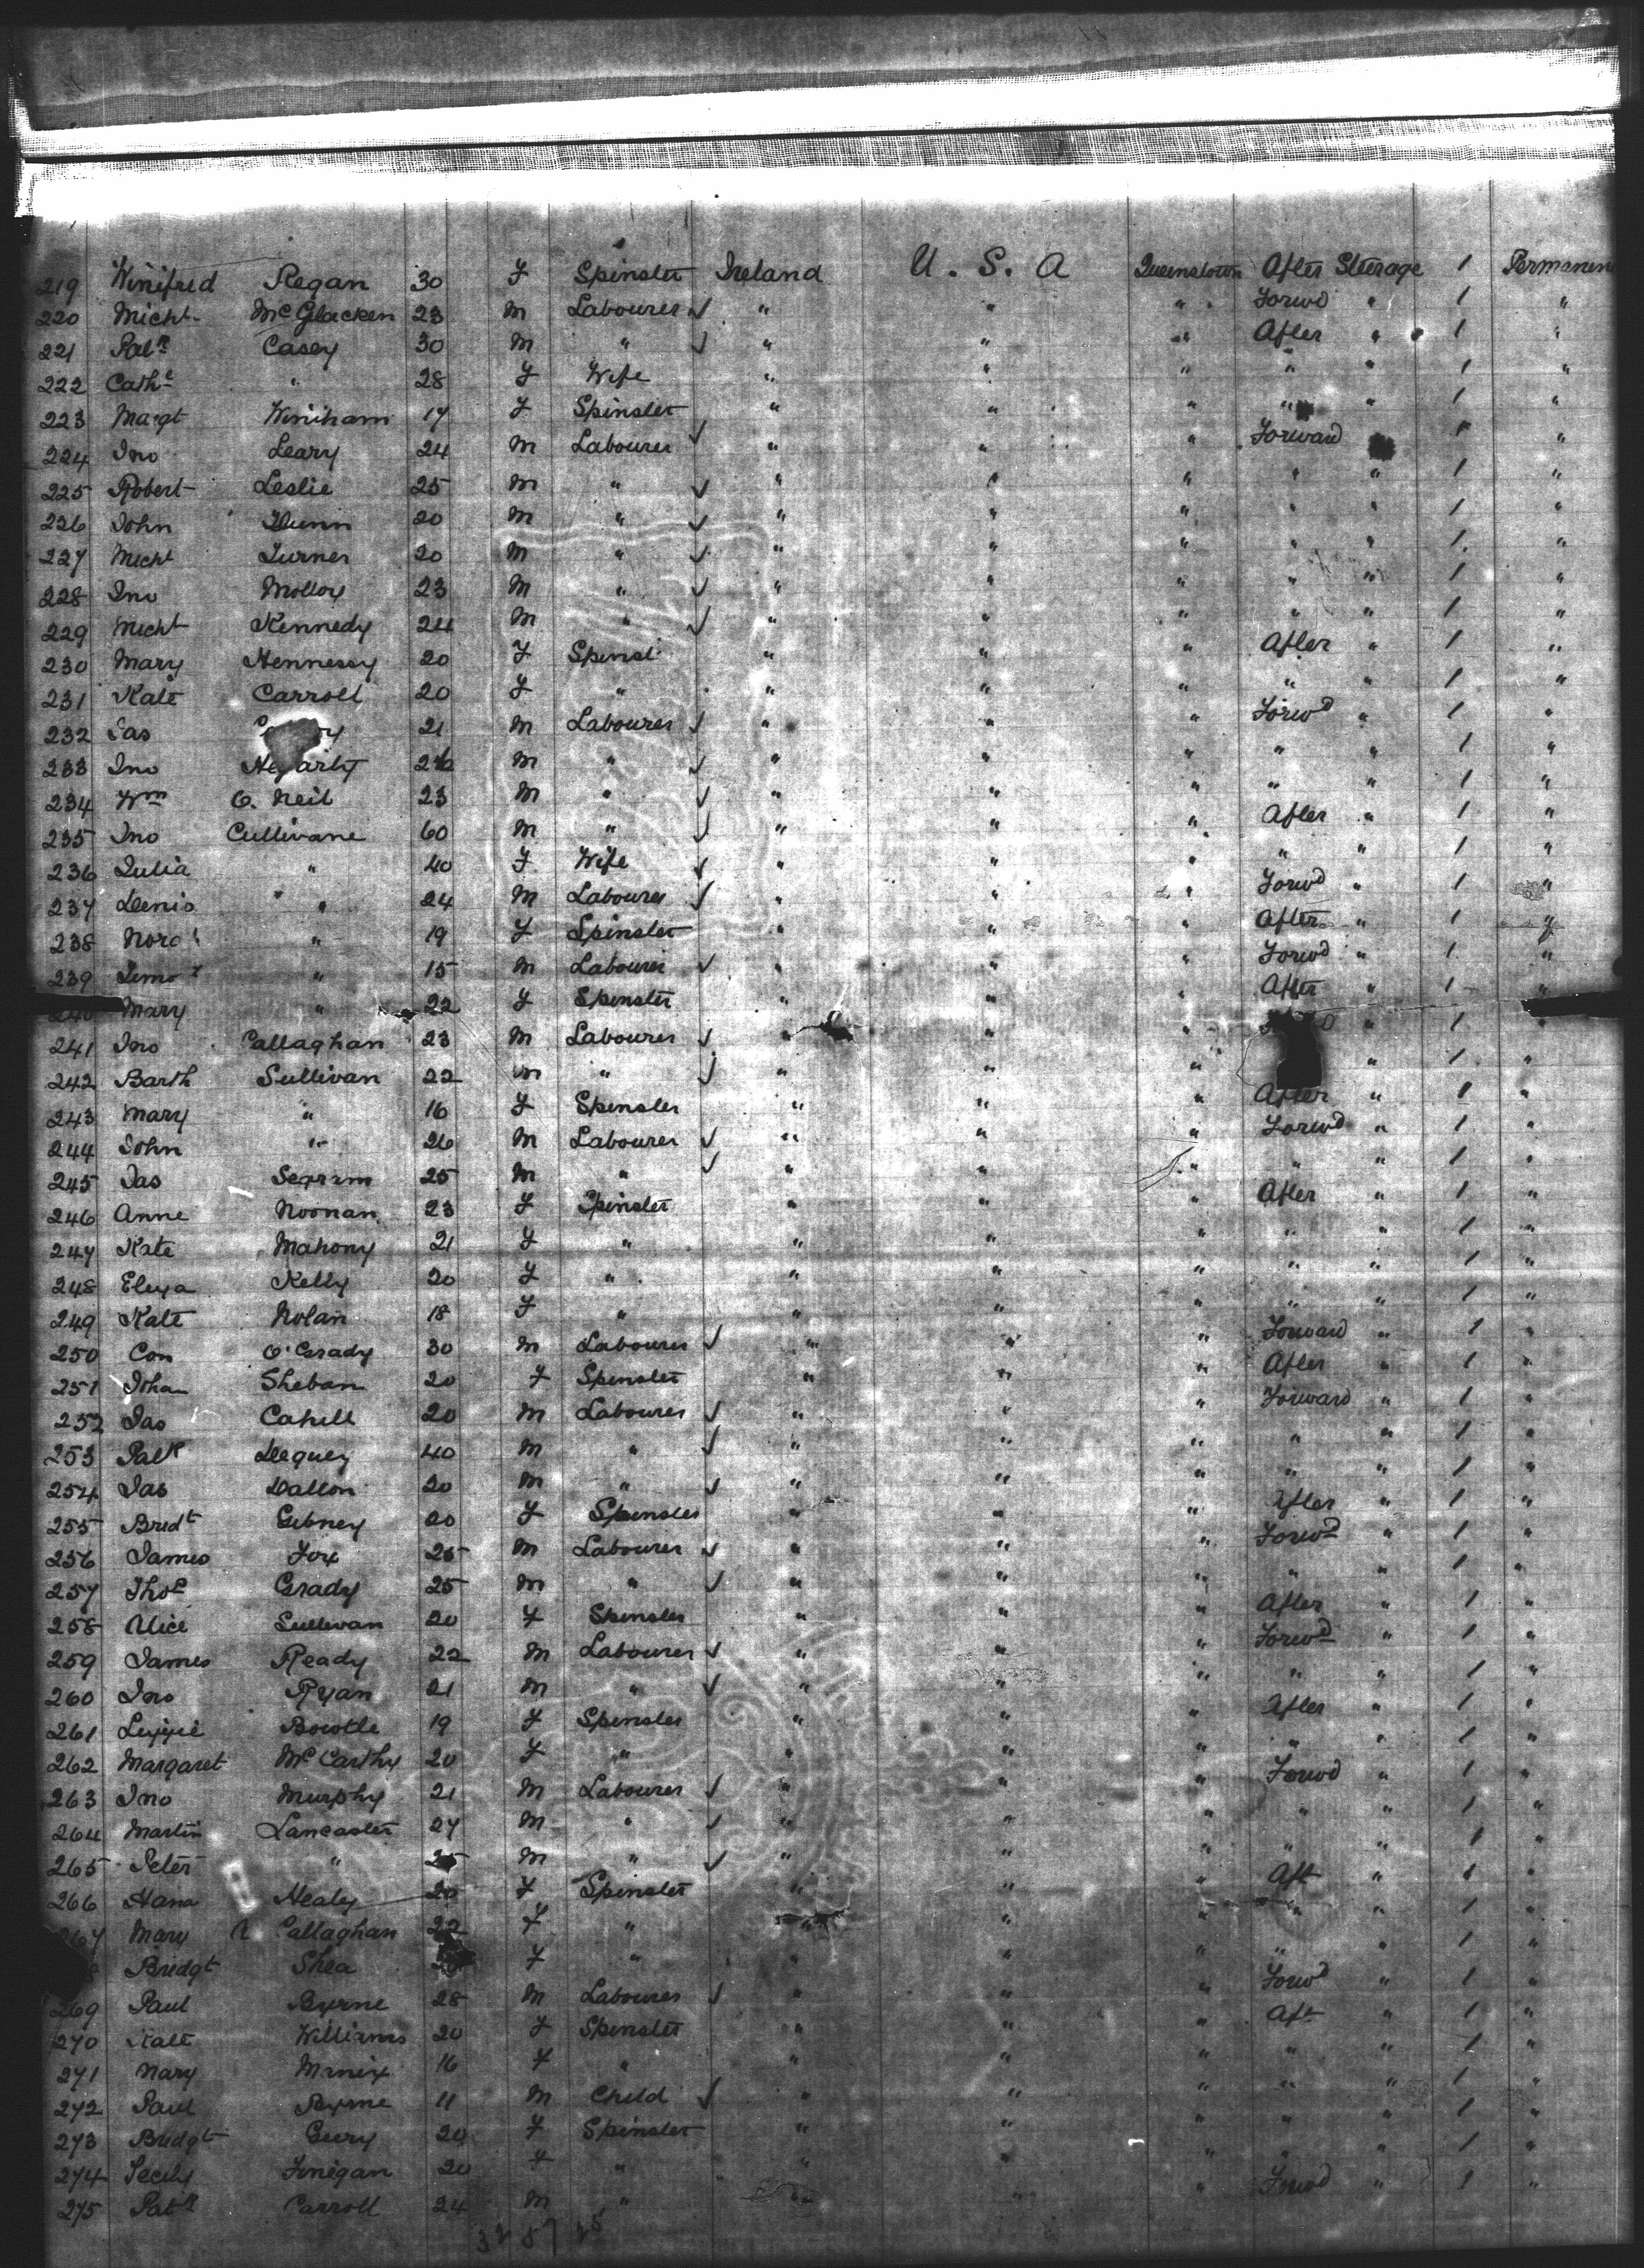 219 Winifred Regan 30 F Spinster Ireland U.S.A Queenstown After Steerage 1 Permanen
220 Michl McGlacken 23 M Labourer ✓ " " " Forwd " 1 "
221 Patk Casey 30 M " ✓ " " " After " 1 "
222 Cathe " 28 F Wife " " " " " 1 "
223 Margt Winiham 17 F Spinster " " " " " 1 "
224 Jno Leary 24 M Labourer ✓ " " " Forward 1 "
225 Robert Leslie 25 M " ✓ " " " " " 1 "
226 John Dunn 20 M " ✓ " " " " " 1 "
227 Michl Turner 20 M " ✓ " " " " " 1 "
228 Jno Molloy 23 M " ✓ " " " " " 1 "
229 Michl Kennedy 24 M " ✓ " " " " " 1 "
230 Mary Hennessy 20 F Spinst " " " After " 1 "
231 Kate Carroll 20 F " " " " " " 1 "
232 Jas 21 M Labourer ✓ " " " Forwd " 1 "
233 Jno Hegarty M " ✓ " " " " " 1 "
234 Wm O. Neil 23 M " ✓ " " " " " 1 "
235 Jno Cullivane 60 M " ✓ " " " After " 1 "
236 Julia " 40 F Wife ✓ " " " " " 1 "
237 Denis " 24 M Labourer ✓ " " " Forwd " 1 "
238 Nora " 19 F Spinster " " " After " 1 "
239 " 15 M Labourer ✓ " " " Forwd " 1 "
240 Mary " 22 F Spinster " " " After " 1 "
241 Jno Callaghan 23 M Labourer ✓ " " " " 1 "
242 Barth Sullivan 22 M " ✓ " " " " 1 "
243 Mary " 16 F Spinster " " " After " 1 "
244 John " 26 M Labourer ✓ " " " Forwd " 1 "
245 Jas 25 M " ✓ " " " " " 1 "
246 Anne Noonan 23 F Spinster " " " After " 1 "
247 Kate Mahony 21 F " " " " " " 1 "
248 Eliza Kelly 20 F " " " " " " 1 "
249 Kate Nolan 18 F " " " " " " 1 "
250 Con O'Grady 30 M Labourer ✓ " " " Forward " 1 "
251 Joha Sheban 20 F Spinster " " " After " 1 "
252 Jas Cahill 20 M Labourer ✓ " " " Forward " 1 "
253 Patk Deguey 40 M " ✓ " " " " " 1 "
254 Jas Dalton 20 M " ✓ " " " " " 1 "
255 Bridt Gibney 20 F Spinster " " " After " 1 "
256 James Fox 25 M Labourer ✓ " " " Forwd " 1 "
257 Thos Grady 25 M " ✓ " " " " " 1 "
258 Alice Sullivan 20 F Spinster " " " After " 1 "
259 James Ready 22 M Labourer ✓ " " " Forwd " 1 "
260 Jno Ryan 21 M " ✓ " " " " " 1 "
261 Lizzie Bowtle 19 F Spinster " " " After " 1 "
262 Margaret McCarthy 20 F " " " " " " 1 "
263 Jno Murphy 21 M Labourer ✓ " " " Forwd " 1 "
264 Martin Lancaster 27 M " ✓ " " " " " 1 "
265 Peter " M " ✓ " " " " " 1 "
266 Hana Healy 20 F Spinster " " " Aft " 1 "
267 Mary Callaghan 22 F " " " " " 1 "
Bridgt Shea F " " " " " " 1 "
269 Paul Byrne 28 M Labourer ✓ " " " Forwd " 1 "
270 Kate Williams 20 F Spinster " " " Aft " 1 "
271 Mary Minix 16 F " " " " " " 1 "
272 Paul Byrne 11 M Child ✓ " " " " " 1 "
273 Bridgt Geery 20 F Spinster " " " " " 1 "
274 Finegan 20 F " " " " " " 1 "
275 Patk Carroll 24 M " " " " Forwd " 1 "